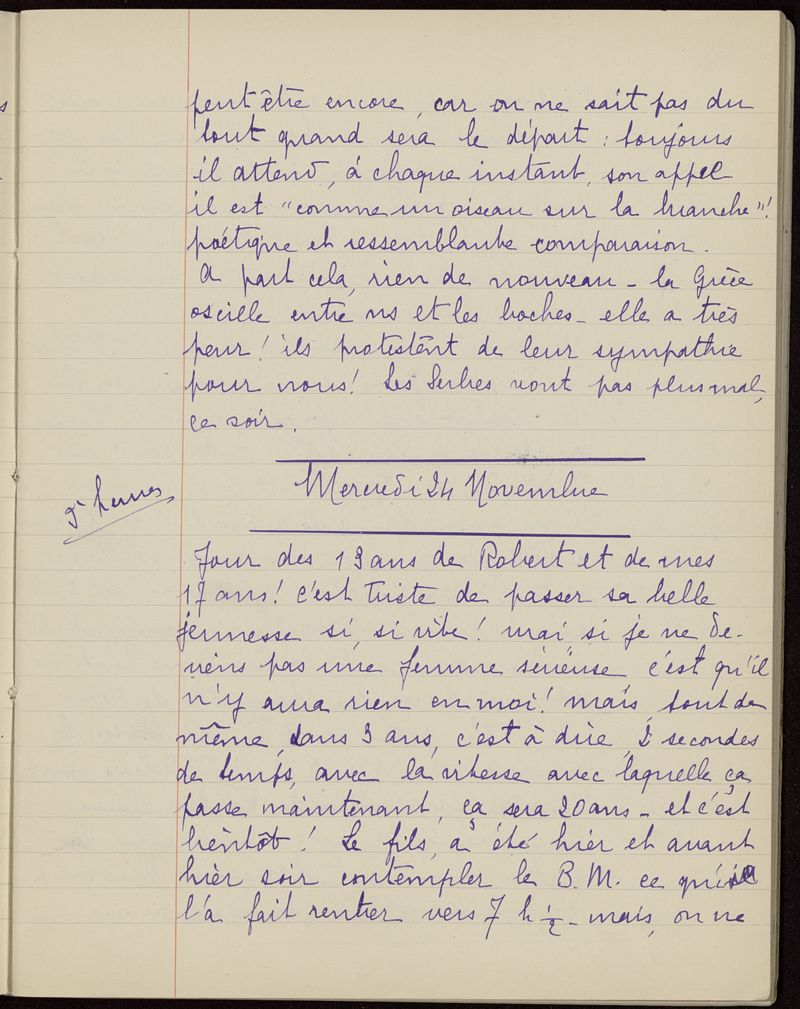 peut être encore, car on ne sait pas du
tout quand sera le départ : toujours
il attend, à chaque instant, son appel
il est "comme un oiseau sur la branche"!
poétique et ressemblante comparaison.
A part cela, rien de nouveau - la Grèce
oscille entre ns et les boches - elle a très
peur! ils protestent de leur sympathie
pour nous! Les Serbes vont pas plus mal,
ce soir.
Mercredi 24 Novembre
heures
Jour des 19 ans de Robert et de mes
17 ans! c'est triste de passer sa belle
jeunesse si, si vite! mai si je ne de-
viens pas une femme sérieuse c'est qu'il
n'y aura rien en moi! mais tout de
même, dans 3 ans, c'est à dire, 2 secondes
de temps, avec la vitesse avec laquelle ça
passe maintenant, ça sera 20 ans - et c'est
bientôt! Le fils, a été hier et avant
hier soir contempler le B.M. ce qui
l'a fait rentrer vers 7 h 1/2 - mais, on ne